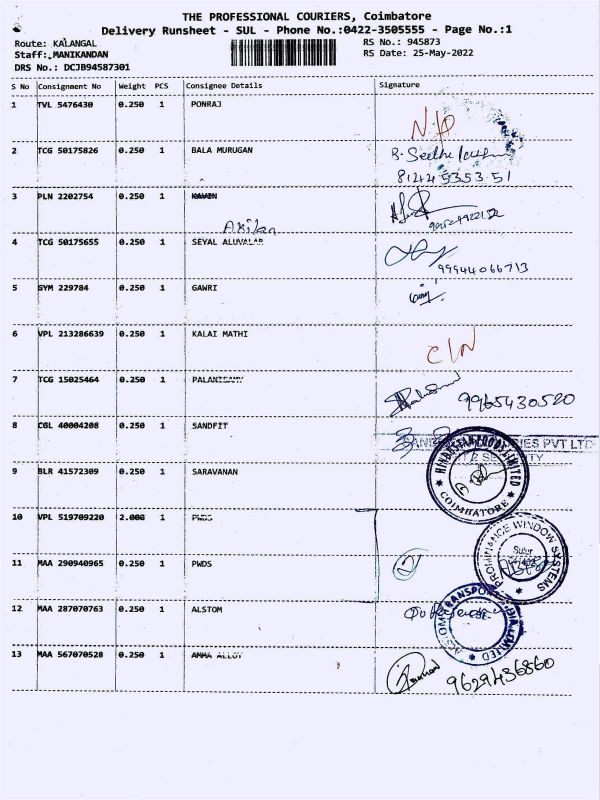 THE PROFESSIONAL COURIERS, Coimbatore
Delivery Runsheet - SUL - Phone No.:0422-3505555 - Page No.:1
Route: KALANGAL
RS No.: 945873
Staff: MANIKANDAN
RS Date: 25-May-2022
DRS No.: DCJB94587301
S No Consignment No Weight PCS Consignee Details Signature
1 TVL 5476430 0.250 1 PONRAJ
N/P
2 TCG 50175826 0.250 1 BALA MURUGAN
B.
8144535351
3 PLN 2202754 0.250 1 KAVIN
Akilan
4 TCG 50175655 0.250 1 SEYAL ALUVALAR
99944066713
5 SYM 229784 0.250 1 GAWRI
6 VPL 213286639 0.250 1 KALAI MATHI
C/N
7 TCG 15025464 0.250 1 PALANISAMY
9965430520
8 CGL 40004208 0.250 1 SANDFIT
PVT LTD
HINDUSTAN FOODS LIMITED
COIMBATORE
9 BLR 41572309 0.250 1 SARAVANAN
10 VPL 519709220 2.000 1 PWDS
PROMINANCE WINDOW SYSTEMS
Sulur
11 MAA 290940965 0.250 1 PWDS
12 MAA 287070763 0.250 1 ALSTOM
ALSTOM TRANSPORT INDIA LIMITED
13 MAA 567070528 0.250 1 AMMA ALLOY
9629436860